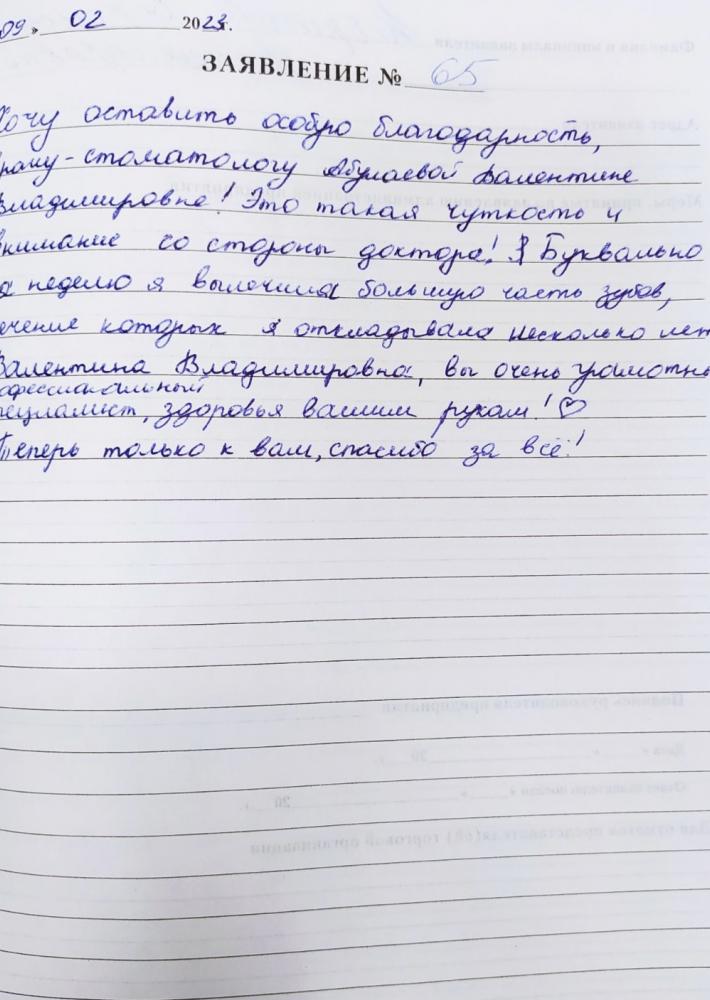 09 » 02 2023 г.
ЗАЯВЛЕНИЕ № 65
Хочу оставить особую благодарность,
врачу-стоматологу Абулаевой Валентине
Владимировне! Это такая чуткость и
внимание со стороны доктора! Буквально
за неделю я вылечила большую часть зубов,
лечение которых я откладывала несколько лет
Валентина Владимировна, вы очень грамотный
профессиональный
специалист, здоровья вашим рукам! ♡
Теперь только к вам, спасибо за всё!